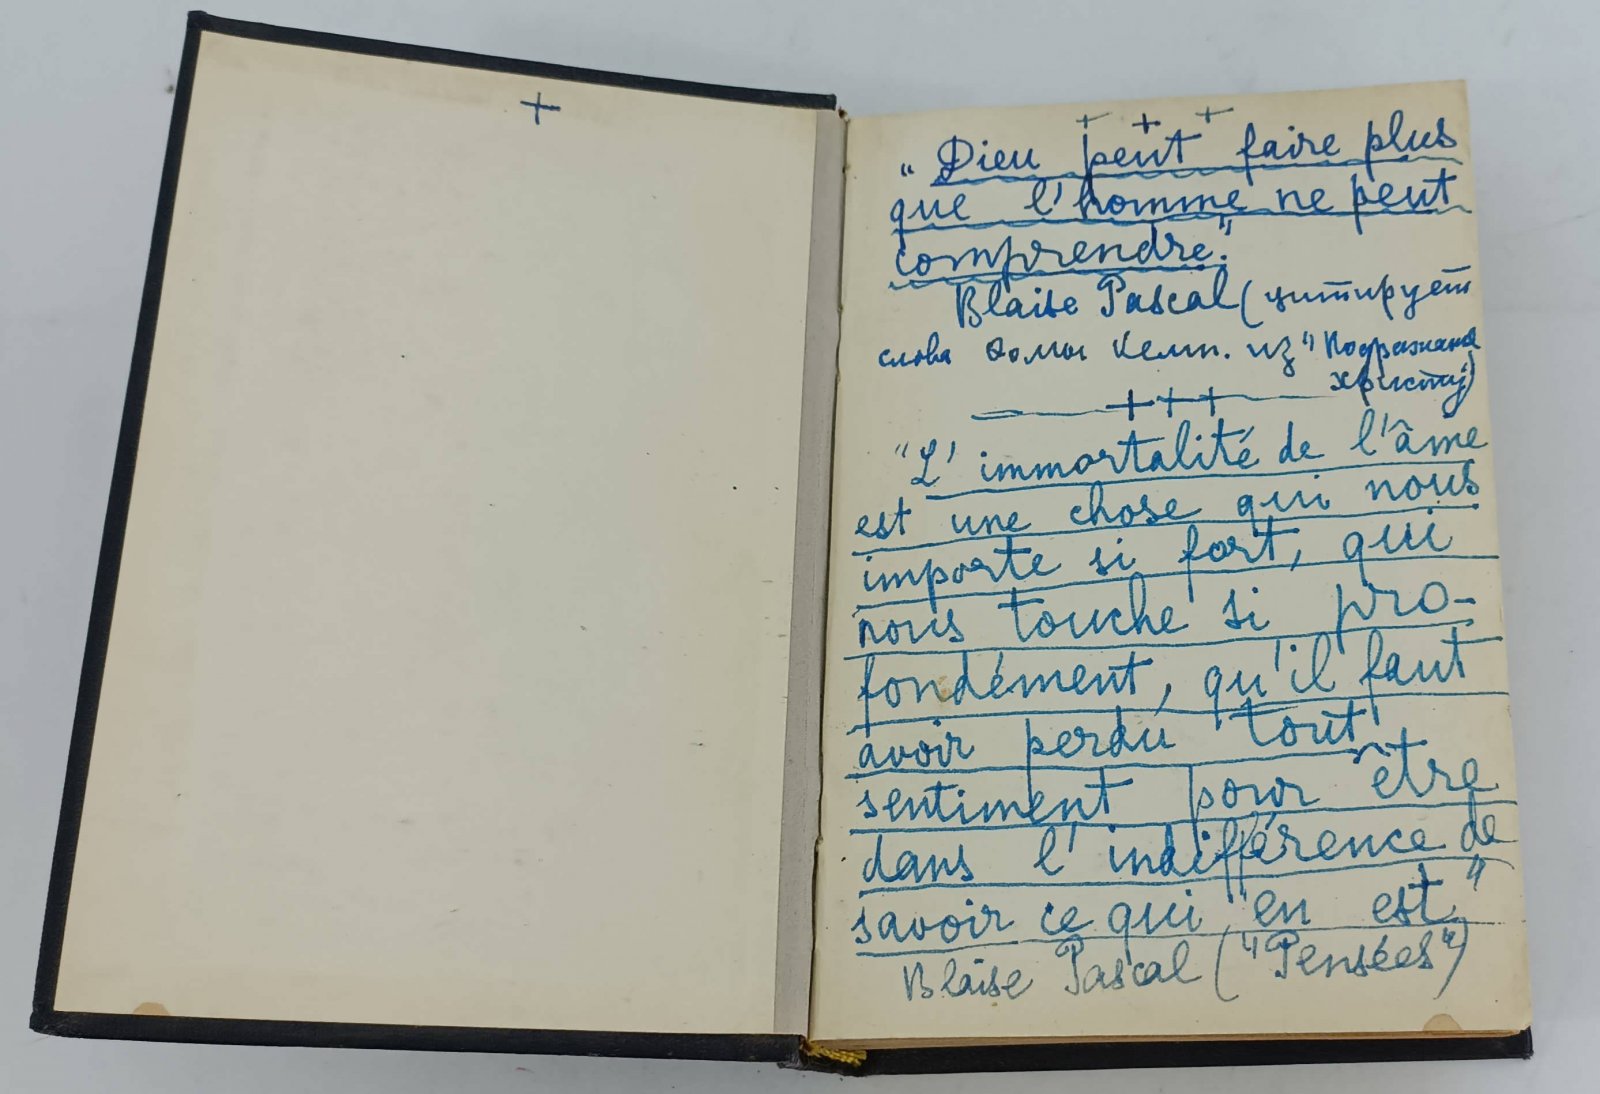 +
+ + +
„Dieu peut faire plus
que l'homme ne peut
comprendre."
Blaise Pascal (цитирует
слова Фомы Кемп. из "Подражания
Христу)
+++
"L'immortalité de l'âme
est une chose qui nous
importe si fort, qui
nous touche si pro-
fondément, qu'il faut
avoir perdu tout
sentiment pour être
dans l'indifférence de
savoir ce qui en est."
Blaise Pascal ("Pensées")